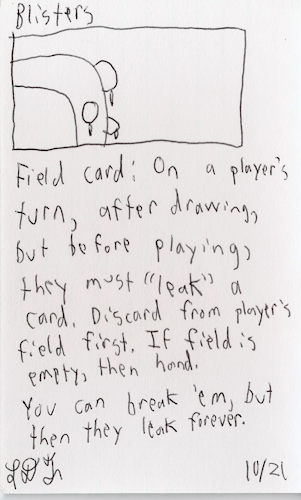 Blisters
Field card: On a player's
turn, after drawing,
but before playing,
they must "leak" a
card. Discard from player's
field first. If field is
empty, then hand.
You can break 'em, but
then they leak forever.
10/21